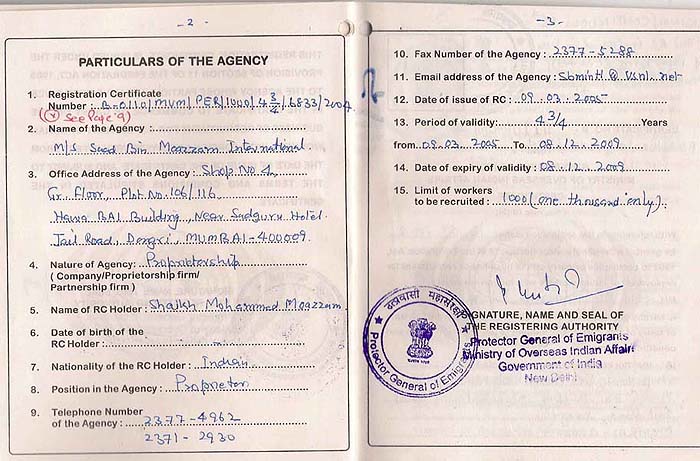 -2-
PARTICULARS OF THE AGENCY
1. Registration Certificate
Number : B-0110/MUM/PER/1000/4 3/4/6833/2004
(see Page 9)
2. Name of the Agency :
M/s Saad Bin Moazzam International.
3. Office Address of the Agency : Shop No 4,
Gr. Floor, Plot No. 106/116
Hawa BAI Building, Near Sadguru Hotel.
Jail Road, Dongri, MUMBAI-400009.
4. Nature of Agency : Proprietorship
( Company/Proprietorship firm/
Partnership firm )
5. Name of RC Holder : Shaikh Mohammed Moazzam
6. Date of birth of the
RC Holder :
7. Nationality of the RC Holder : Indian
8. Position in the Agency : Proprietor
9. Telephone Number
of the Agency : 2377-4962
2371-2930
-3-
10. Fax Number of the Agency : 2377-5288
11. Email address of the Agency : Sbmintl@vsnl.net
12. Date of issue of RC : 09.03.2005
13. Period of validity : 4 3/4 Years
from 09.03.2005 To 08.12.2009
14. Date of expiry of validity : 08.12.2009
15. Limit of workers
to be recruited : 1000 (one thousand only).
SIGNATURE, NAME AND SEAL OF
THE REGISTERING AUTHORITY
Protector General of Emigrants
Ministry of Overseas Indian Affairs
Government of India
New Delhi
उत्प्रवासी महासंरक्षी
Protector General of Emigrants